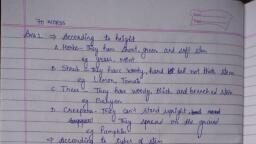 Ans 1. → According to height
A. Herbs - They have short, green and soft stem
eg grass, mint
B. Shrub - They have woody, hard but not thick stem
eg Lemon, Tomato
C. Trees - They have woody, thick and branched stem
eg Banyan
D. Creepers - They can't stand upright
They spread on the ground
eg Pumpkin
→ According to types of stem